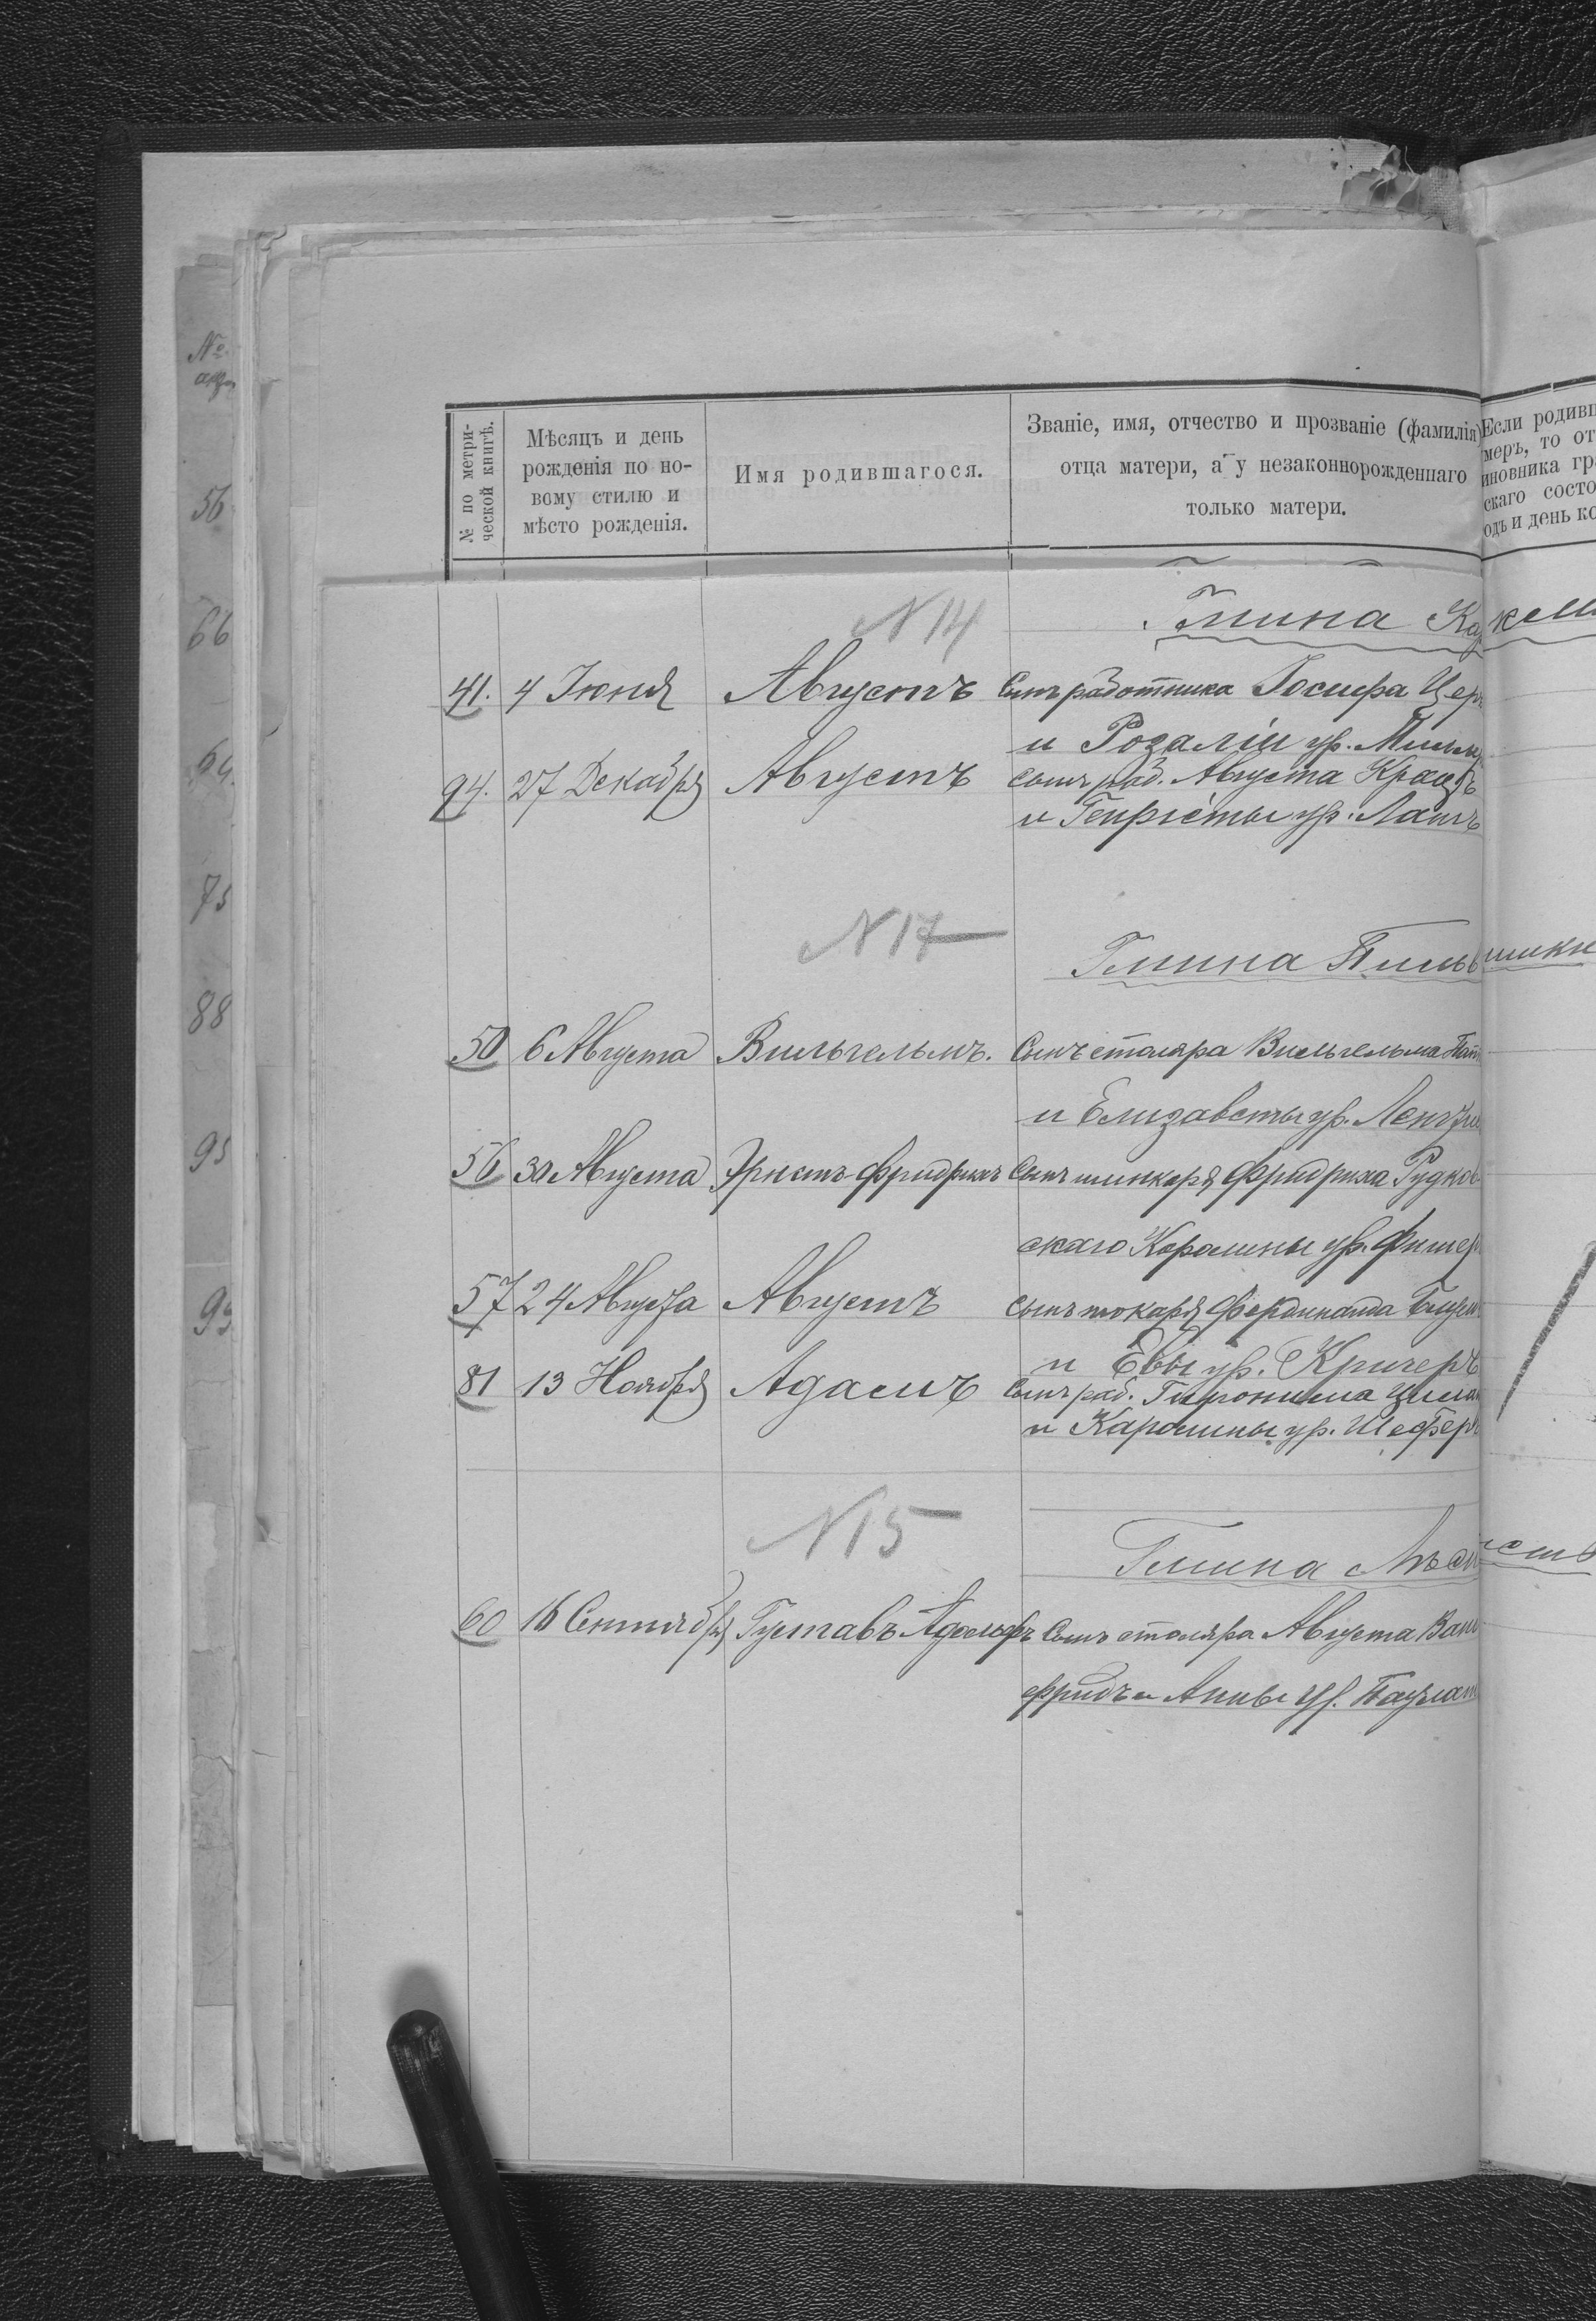 №
56
66
75
88
95
№ по метри-
ческой книгѣ.
Мѣсяцъ и день
рожденія по но-
вому стилю и
мѣсто рожденія.
Имя родившагося.
Званіе, имя, отчество и прозваніе (фамилія)
отца матери, а у незаконнорожденнаго
только матери.
Если родивш
умеръ, то от
иновника гра
скаго состо
одъ и день ко
N 14
Гмина
41. 4 Іюня Августъ Сынъ работника Іосифа Цер
и Розаліи ур.
94. 27 Декабря Августъ сынъ раб. Августа
и Генріеты ур. Лангъ
N 17
Гмина Пильвишки
50 6 Августа Вильгельмъ. Сынъ столяра Вильгельма
и Елизаветы ур.
56 30 Августа Эрнстъ-Фридрихъ Сынъ шинкаря Фридриха Рудков
скаго Каролины ур. Фишер
57 24 Августа Августъ сынъ токаря Фердинанда
и Евы ур. Кригеръ
81 13 Ноября Адамъ Сынъ раб. Гиронима
и Каролины ур. Шеферъ
N 15
Гмина
60 16 Сентября Густавъ Адольфъ Сынъ столяра Августа Ван
фридъ и Анны ур.